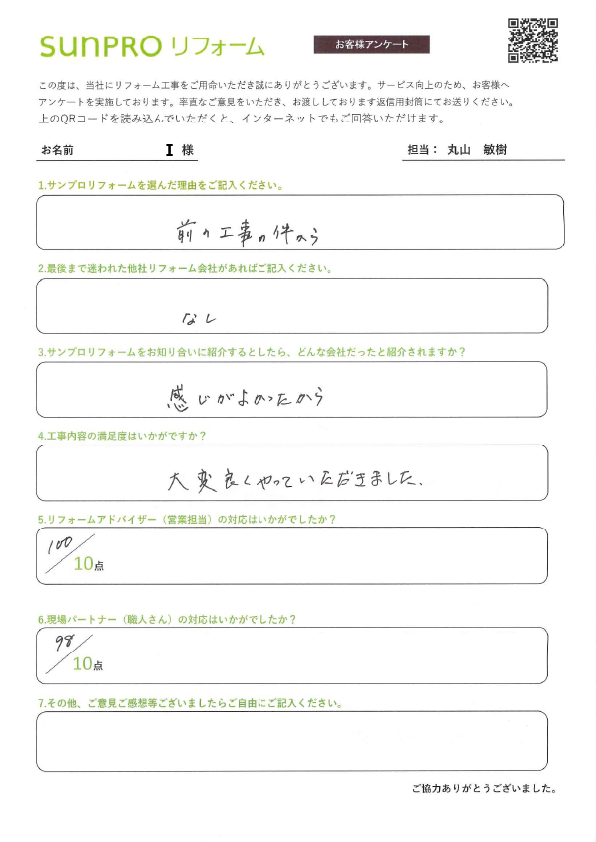 SUNPRO リフォーム
お客様アンケート
この度は、当社にリフォーム工事をご用命いただき誠にありがとうございます。サービス向上のため、お客様へ
アンケートを実施しております。率直なご意見をいただき、お渡ししております返信用封筒にてお送りください。
上のQRコードを読み込んでいただくと、インターネットでもご回答いただけます。
お名前 I 様 担当： 丸山 敏樹
1.サンプロリフォームを選んだ理由をご記入ください。
前の工事の件から
2.最後まで迷われた他社リフォーム会社があればご記入ください。
なし
3.サンプロリフォームをお知り合いに紹介するとしたら、どんな会社だったと紹介されますか？
感じがよかったから
4.工事内容の満足度はいかがですか？
大変良くやっていただきました、
5.リフォームアドバイザー（営業担当）の対応はいかがでしたか？
100/10点
6.現場パートナー（職人さん）の対応はいかがでしたか？
98/10点
7.その他、ご意見ご感想等ございましたらご自由にご記入ください。
ご協力ありがとうございました。